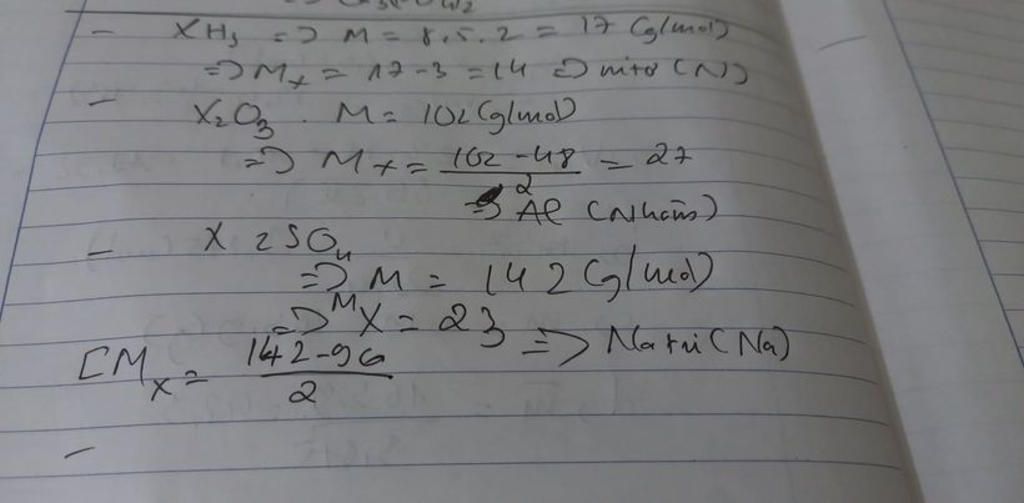 - XH₃ => M = 8,5.2 = 17 (g/mol)
=> Mₓ = 17-3 = 14 => nitơ (N)
- X₂O₃. M = 102 (g/mol)
=> Mₓ = (102-48)/2 = 27
=> Al (Nhôm)
- X₂SO₄
=> M = 142 (g/mol)
=> Mₓ = 23 => Natri (Na)
[Mₓ = (142-96)/2
-